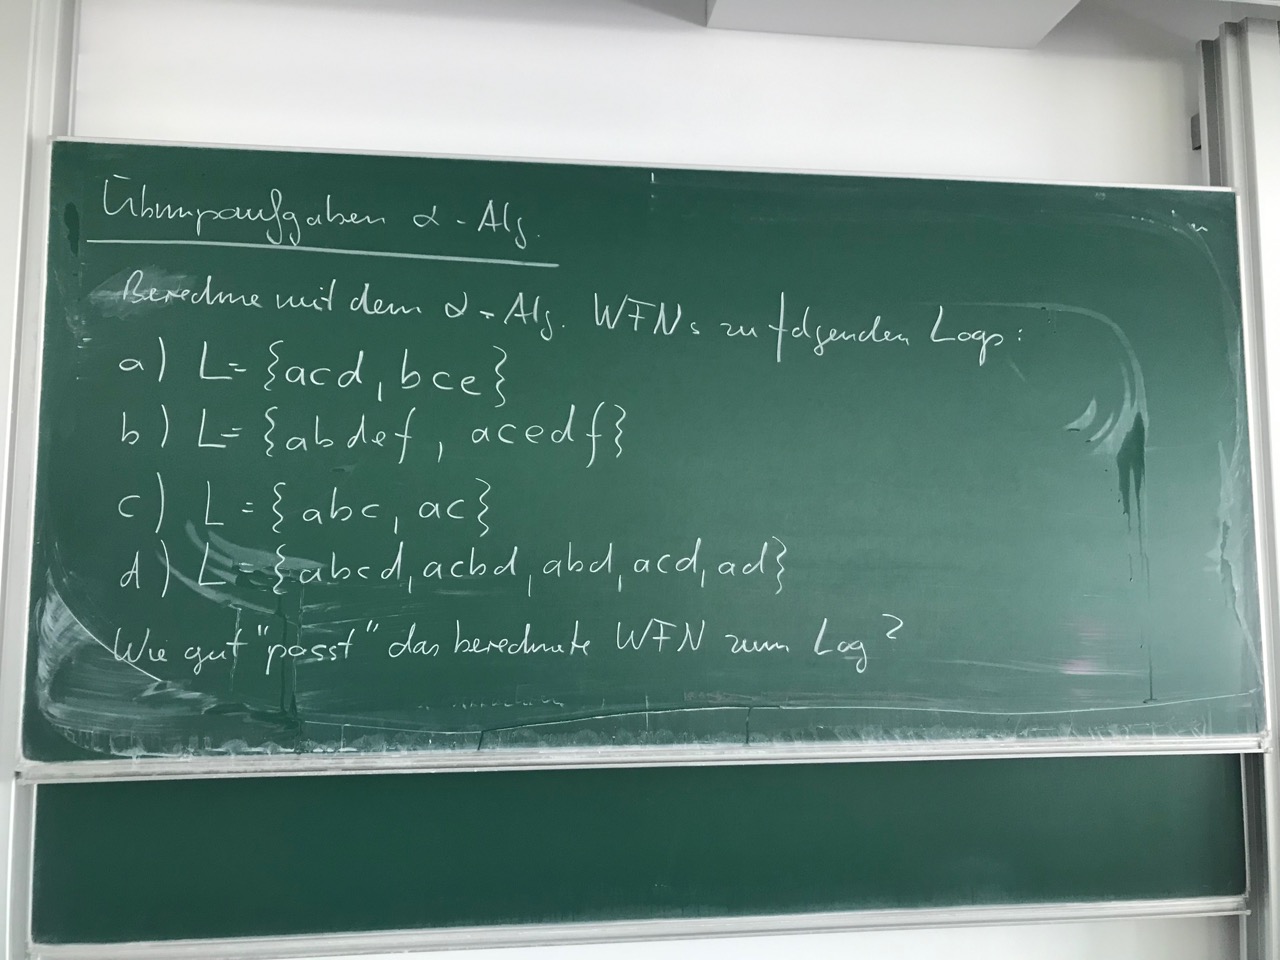 Übungsaufgaben α-Alg.
Berechne mit dem α-Alg. WFNs zu folgenden Logs:
a) L={acd, bce}
b) L={abdef, acedf}
c) L={abc, ac}
d) L={abcd, acbd, abd, acd, ad}
Wie gut "passt" das berechnete WFN zum Log?